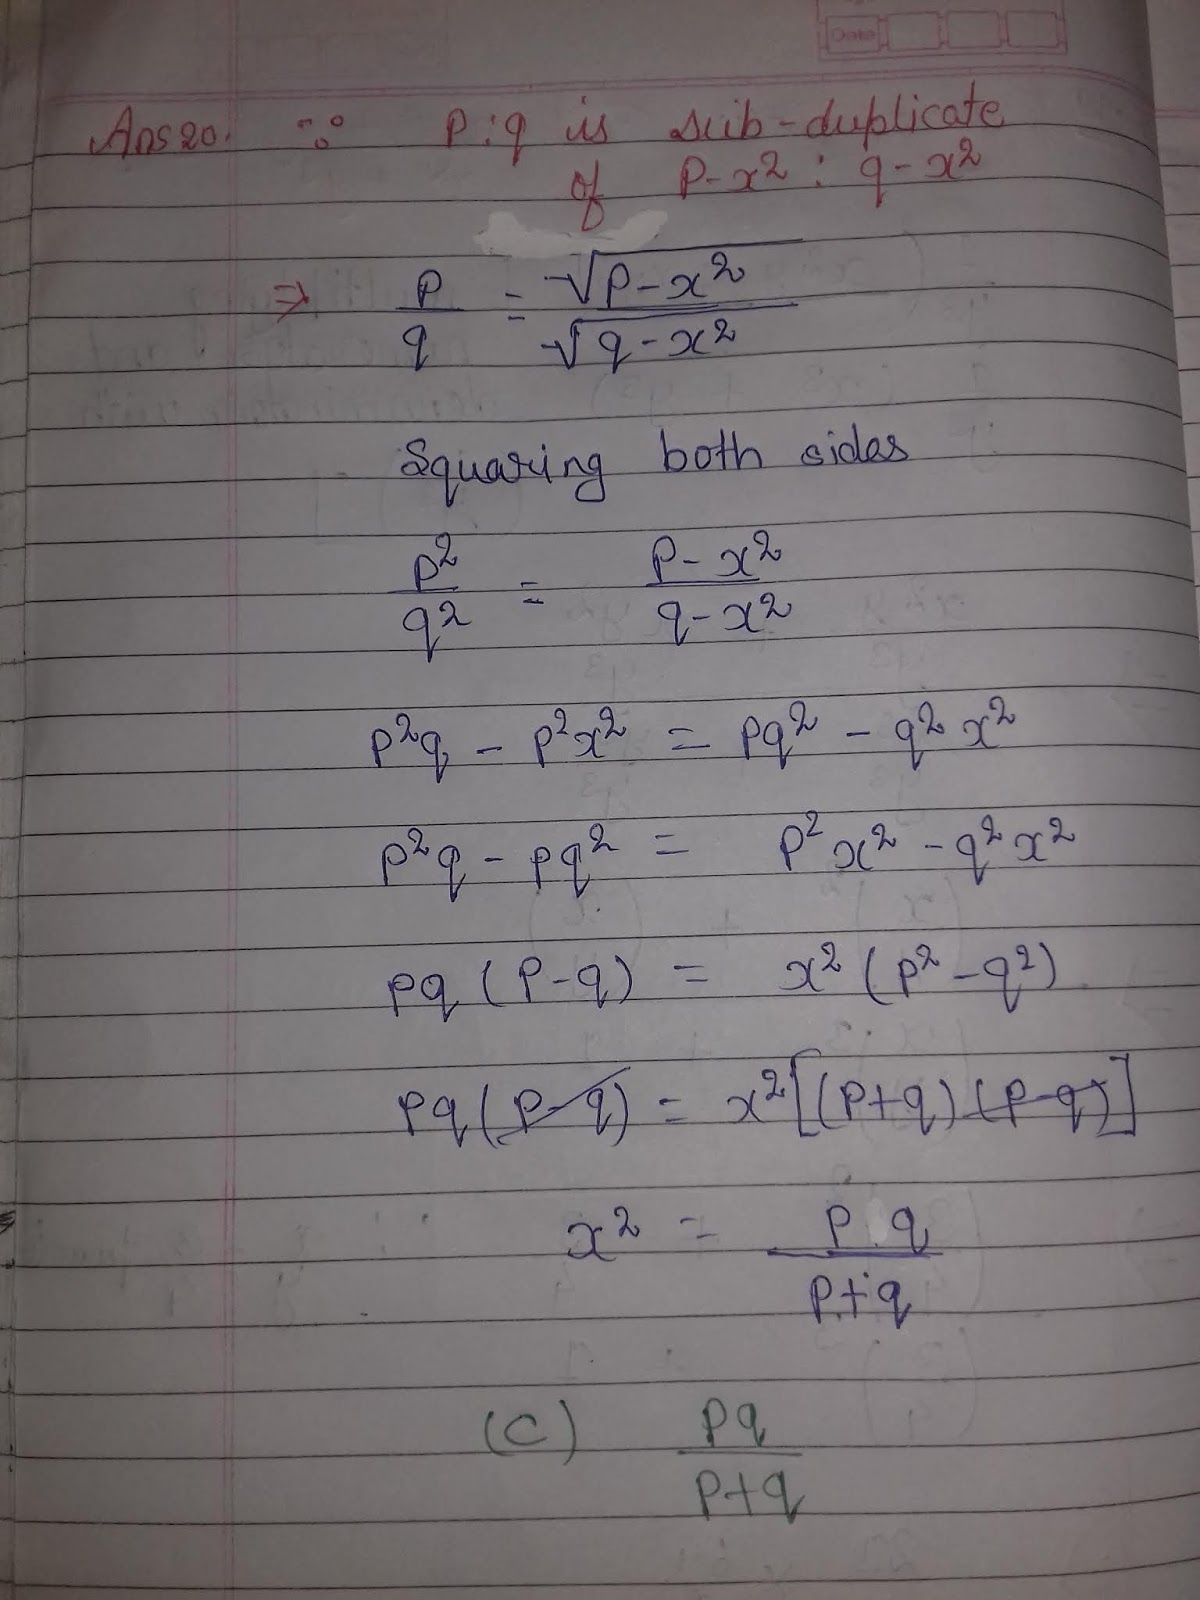 Date
Ans 20. ∵ P:q is sub-duplicate
of P-x² : q-x²
⇒ P/q = √(P-x²)/√(q-x²)
Squaring both sides
P²/q² = P-x²/q-x²
P²q - P²x² = Pq² - q²x²
P²q - Pq² = P²x² - q²x²
Pq (P-q) = x² (P²-q²)
Pq (P-q) = x² [(P+q) (P-q)]
x² = P q/P+q
(C) Pq/P+q